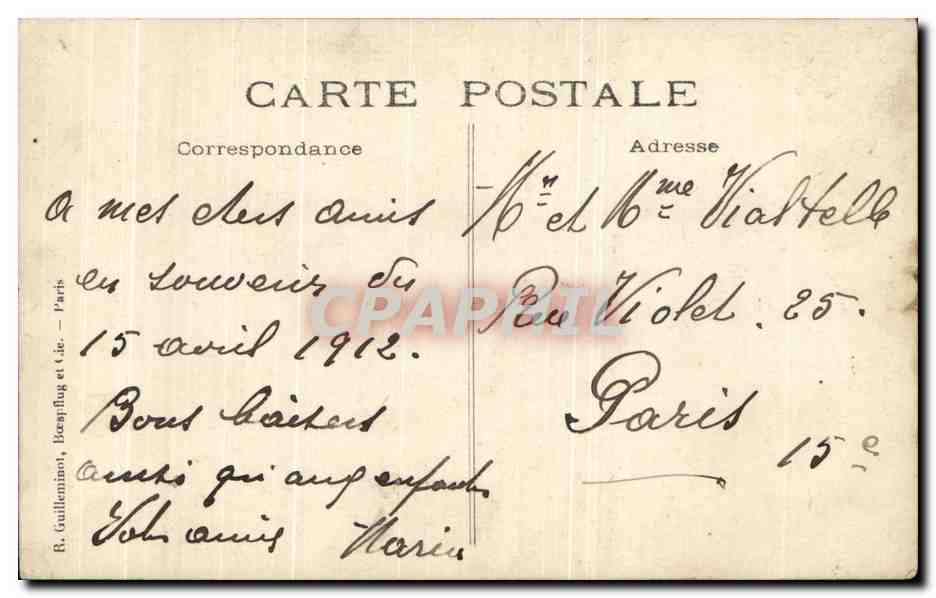 CARTE POSTALE
Correspondance
Adresse
a mes chers amis
en souvenir du
15 avril 1912.
Bons baisers
ainsi qu'aux enfants
Votre amie Maria
Mr et Mme Vialtelle
Rue Violet. 25.
Paris
15e
R. Guilleminot, Bœspflug et Cie. — Paris
CPAPHIL